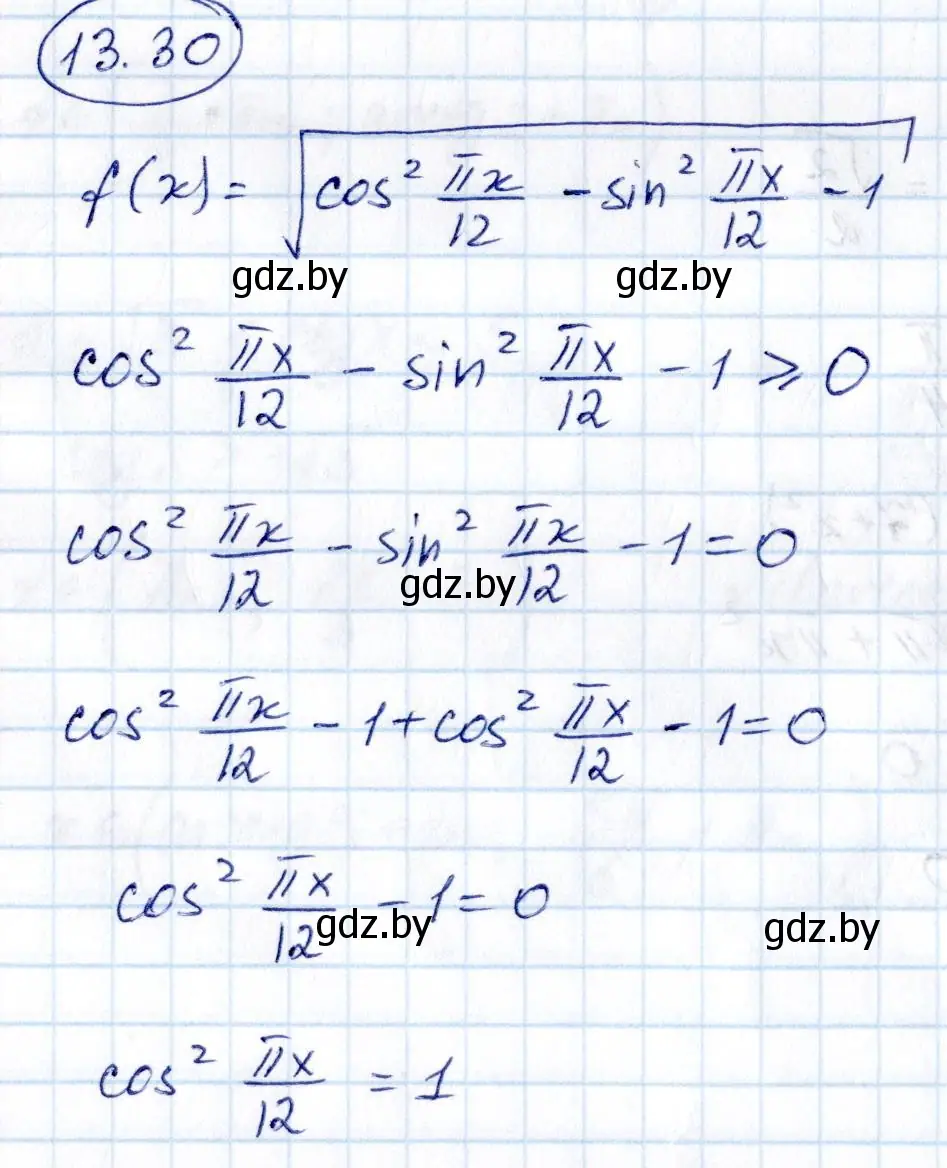 13.30
f(x) = √(cos² πx/12 − sin² πx/12 − 1)
gdz.by gdz.by
cos² πx/12 − sin² πx/12 − 1 ⩾ 0
cos² πx/12 − sin² πx/12 − 1 = 0
gdz.by
cos² πx/12 − 1 + cos² πx/12 − 1 = 0
cos² πx/12 − 1 = 0
gdz.by gdz.by
cos² πx/12 = 1